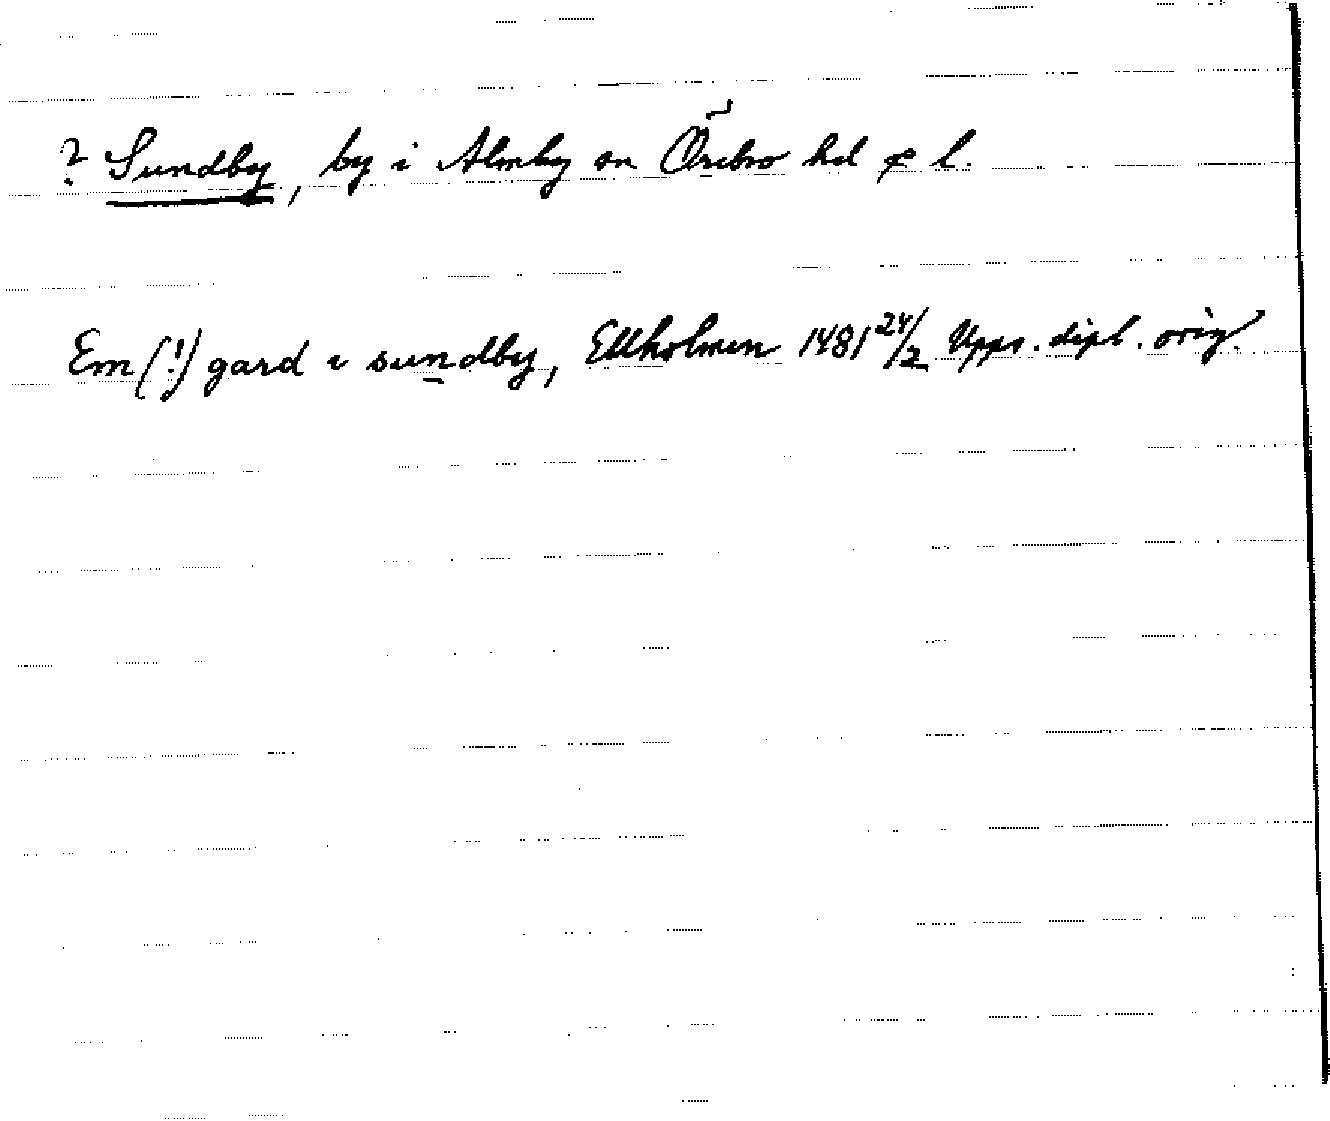 ? Sundby, by i Almby sn Örebro hd o l.
Em (!) gard i sundby, Ellholmen 1481 24/2 Upps. dipl. orig.